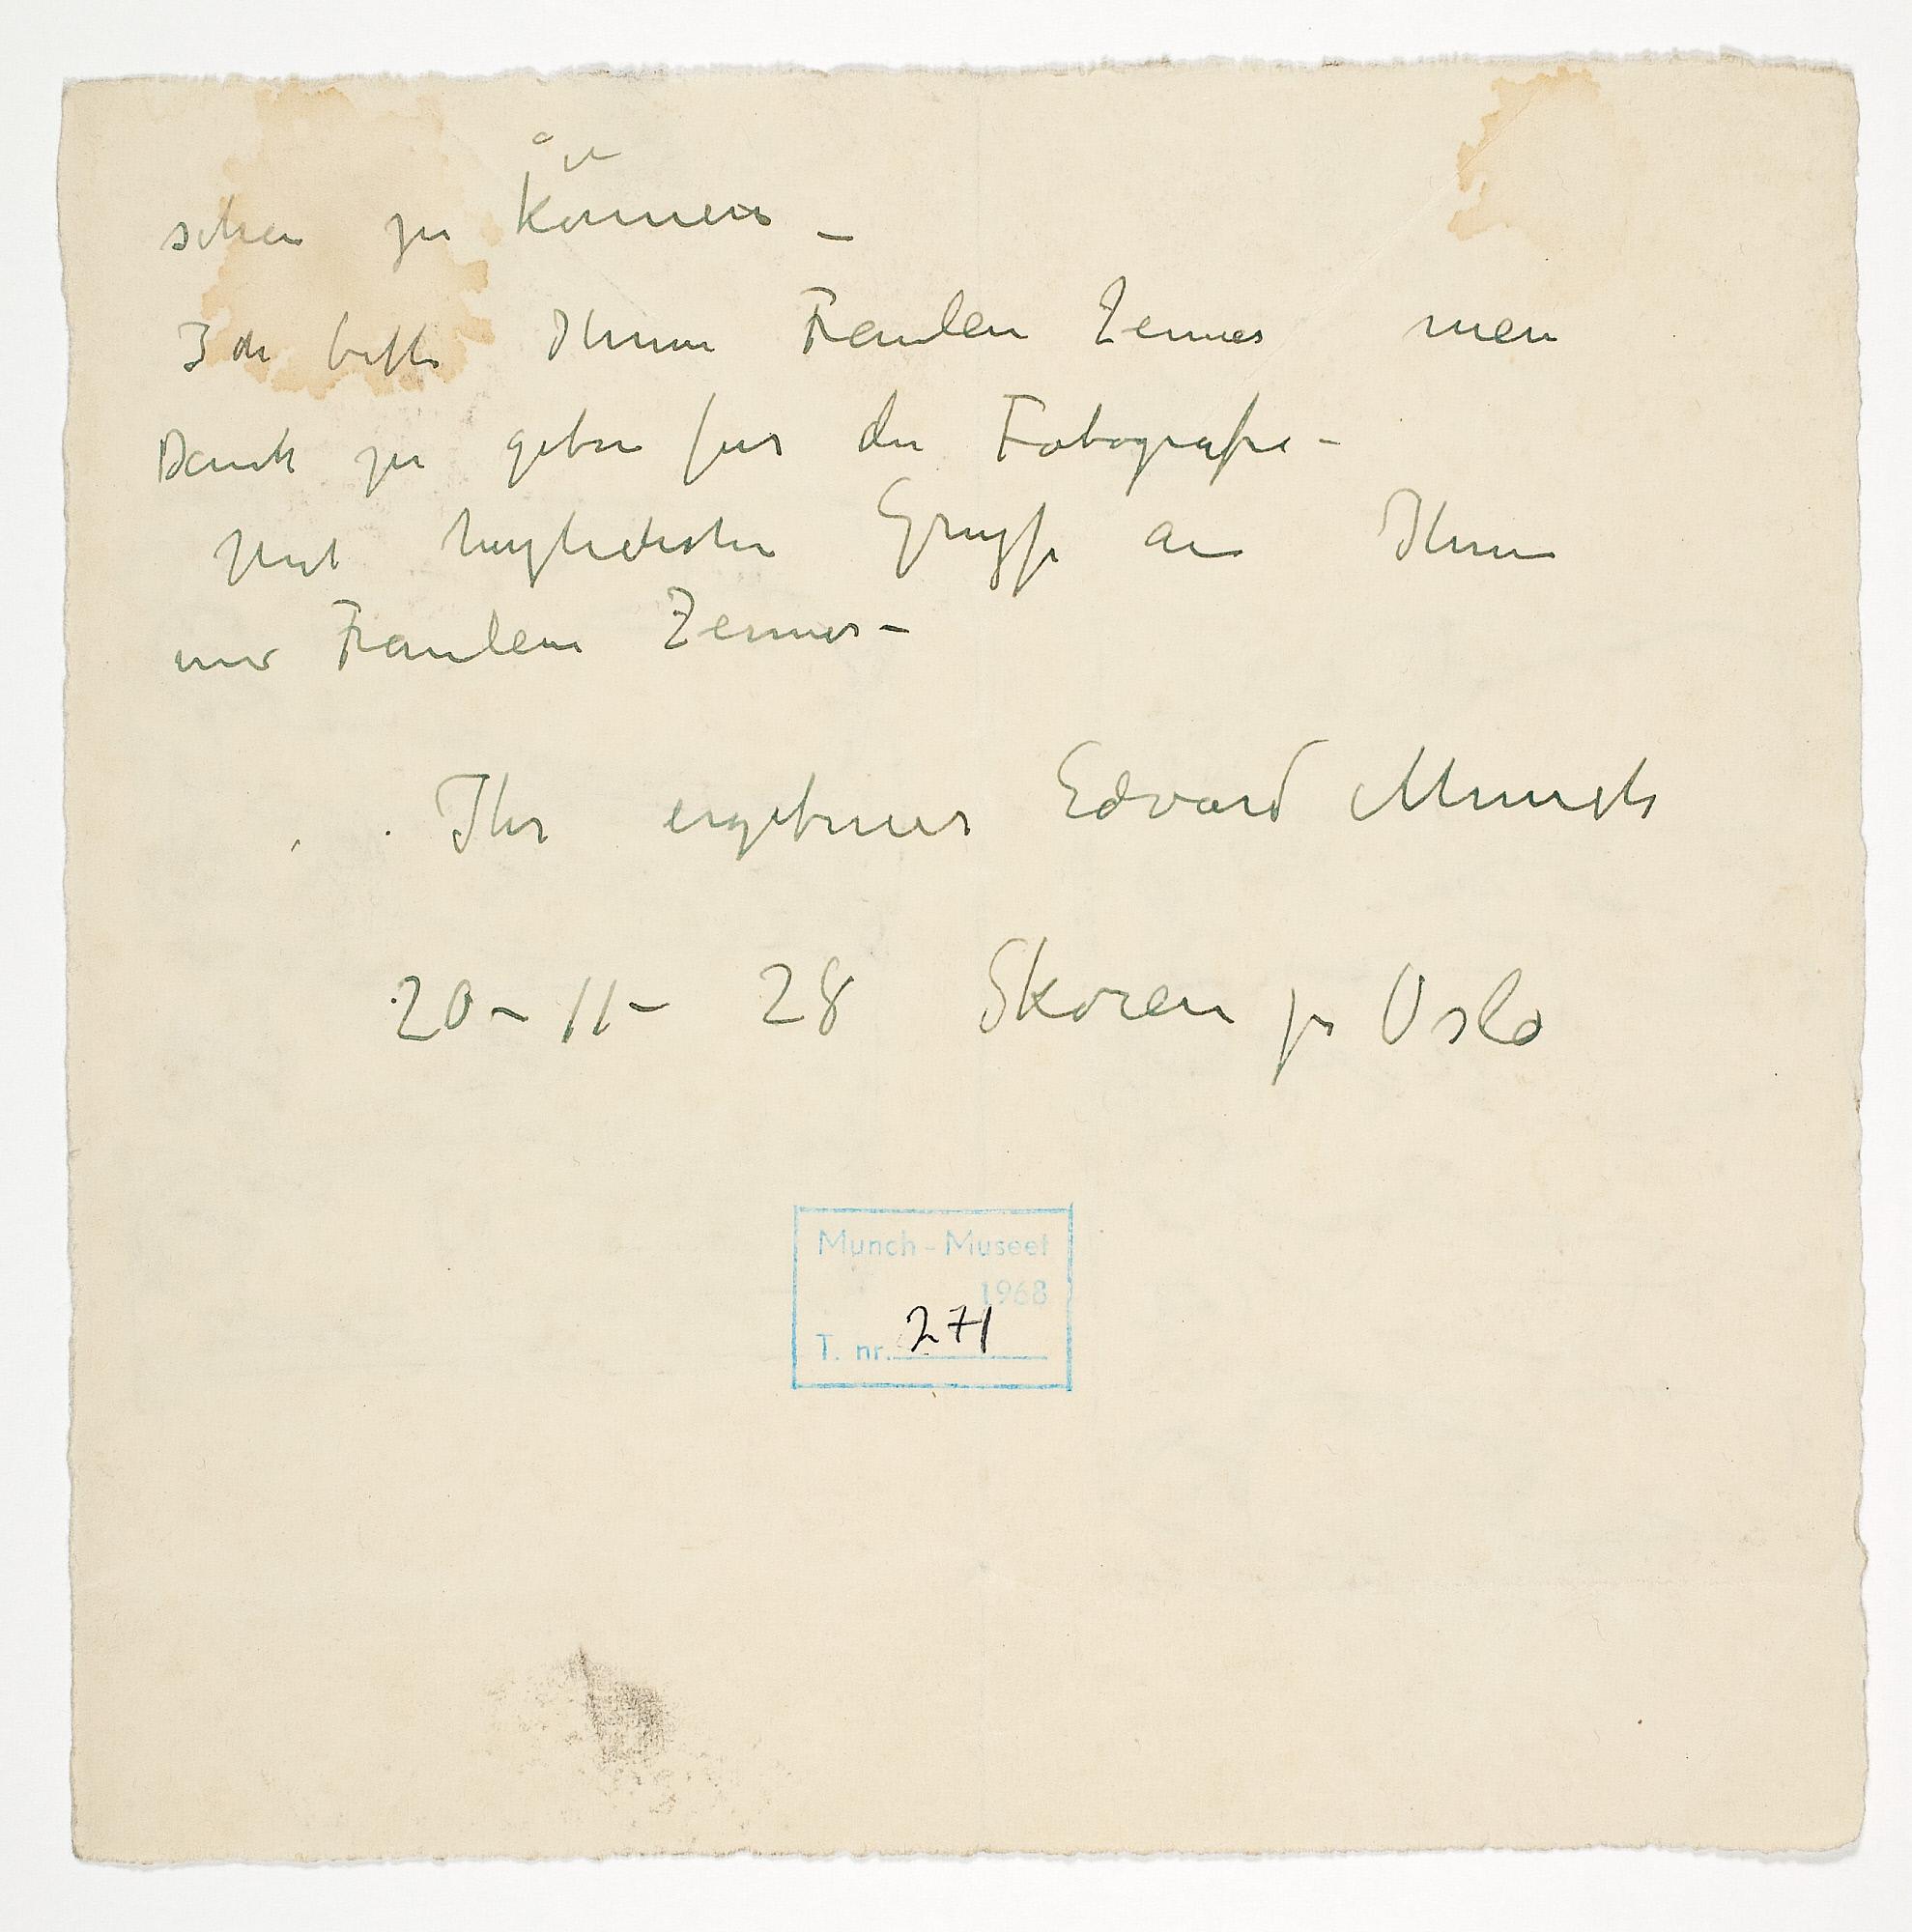 sehen zu können –
Ich bitte Ihnen Fraulein Zenner mein
Dank zu geben fur die Fotografie –
Mit herzlichsten Grusse an Ihnen
und Fraulein Zenner –
Ihr ergebener Edvard Munch
20 – 11 – 28 Skøien pr Oslo
Munch-Museet
1968
T. nr. 271